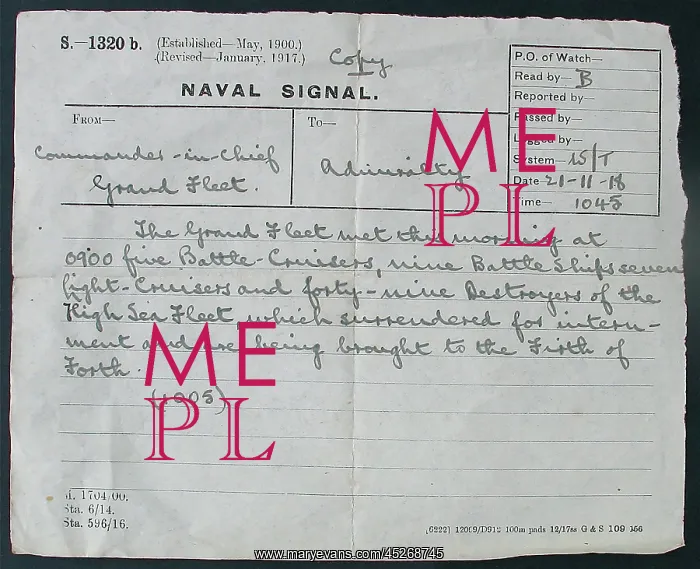 S.—1320 b. (Established—May, 1900.)
(Revised—January, 1917.)
Copy
NAVAL SIGNAL.
P.O. of Watch—
Read by— B
Reported by—
Passed by—
Logged by—
System— W/T
Date— 21-11-18
Time— 1045
FROM—
Commander-in-Chief
Grand Fleet.
To—
Admiralty
The Grand Fleet met this morning at
0900 five Battle-Cruisers, nine Battle Ships seven
light-Cruisers and forty-nine Destroyers of the
High Sea Fleet which surrendered for intern-
ment and are being brought to the Firth of
Forth.
(1005)
ME
PL
ME
PL
1704/00.
Sta. 6/14.
Sta. 596/16.
[6222] 12069/D912 100m pads 12/17ss G & S 109 156
www.maryevans.com/45268745